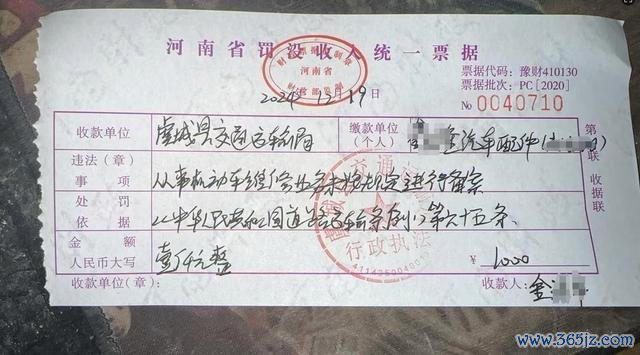 河南省罚没收入统一票据
河南省
财政部监制
票据代码：豫财410130
票据批次：PC [2020]
2024年12月19日
№ 0040710
收款单位
虞城县交通运输局
缴款单位
（个人）
金汽车配件(
违法（章）
事项
从事机动车维修业务未按规定进行备案
处罚
依据
《中华人民共和国道路运输条例》第六十五条
金额
人民币大写
壹仟元整
¥ 1000
收款单位(章)：
收款人：
金
第
联
收据联
行政执法
www.365jz.com